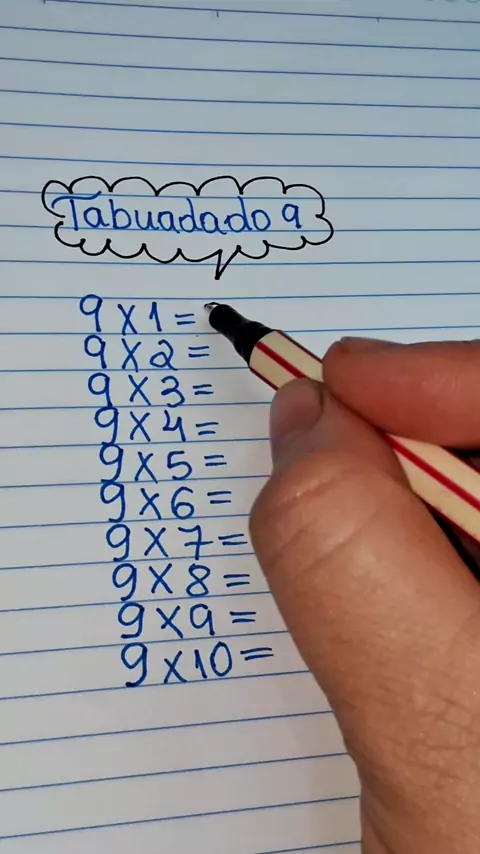 Tabuadado 9
9 x 1 =
9 x 2 =
9 x 3 =
9 x 4 =
9 x 5 =
9 x 6 =
9 x 7 =
9 x 8 =
9 x 9 =
9 x 10 =